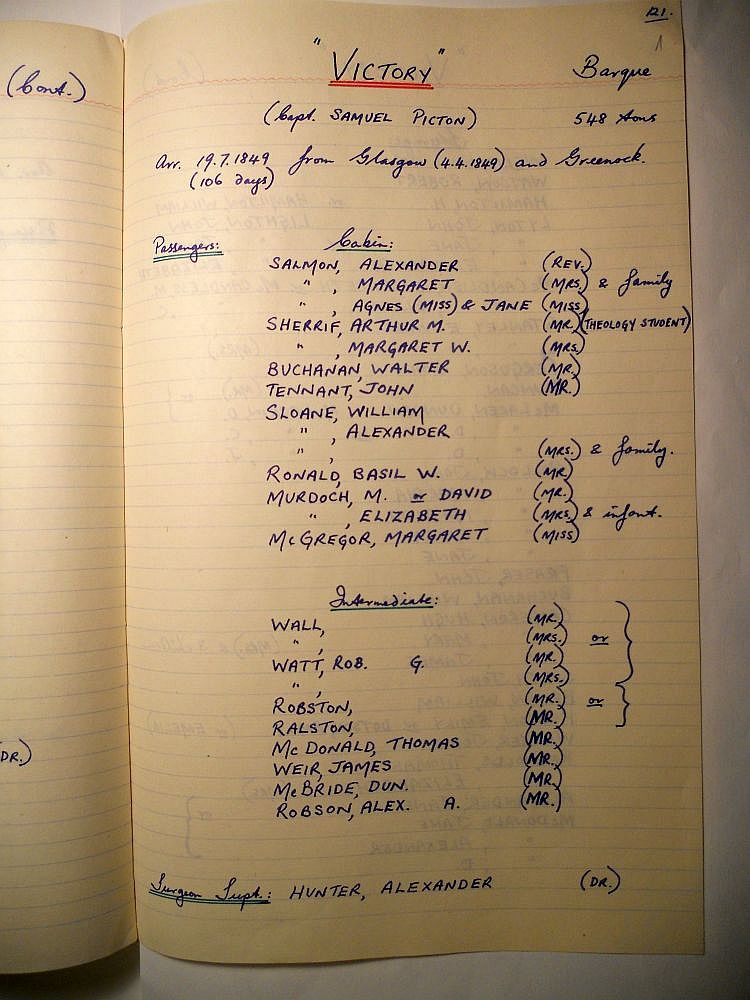 (Cont.)
DR.)
121.
"VICTORY" Barque
(Capt. SAMUEL PICTON) 548 tons
Arr. 19.7.1849 from Glasgow (4.4.1849) and Greenock.
(106 days)
Passengers: Cabin:
SALMON, ALEXANDER (REV.)
" , MARGARET (MRS.) & family
" , AGNES (MISS) & JANE (MISS)
SHERRIF, ARTHUR M. (MR.) (THEOLOGY STUDENT)
" , MARGARET W. (MRS.)
BUCHANAN, WALTER (MR.)
TENNANT, JOHN (MR.)
SLOANE, WILLIAM
" , ALEXANDER
" , (MRS.) & family.
RONALD, BASIL W. (MR)
MURDOCH, M. or DAVID (MR.)
" , ELIZABETH (MRS.) & infant.
McGREGOR, MARGARET (MISS)
Intermediate:
WALL, (MR.)
" , (MRS.) or
WATT, ROB. G. (MR.)
" , (MRS.)
ROBSTON, (MR.) or
RALSTON, (MR.)
McDONALD, THOMAS (MR.)
WEIR, JAMES (MR.)
McBRIDE, DUN. (MR.)
ROBSON, ALEX. A. (MR.)
Surgeon Supt.: HUNTER, ALEXANDER (DR.)